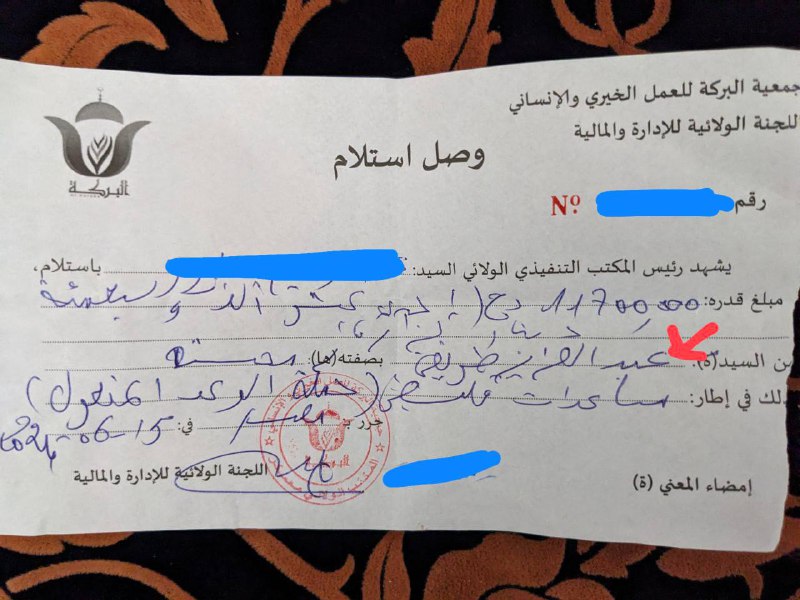 جمعية البركة للعمل الخيري والإنساني
اللجنة الولائية للإدارة والمالية
البركة
وصل استلام
رقم Nº
يشهد رئيس المكتب التنفيذي الولائي السيد: باستلام،
مبلغ قدره: 11700,00 دج (إحدى عشر ألف و سبعمئة
دينار جزائري)
من السيد(ة): عبد العزيز طريفة بصفته(ها): محسن
ذلك في إطار: مساعدات فلسطين (حملة الوعد المفعول)
حرر بـ في: 15-06-2024
إمضاء المعني (ة)
اللجنة الولائية للإدارة والمالية